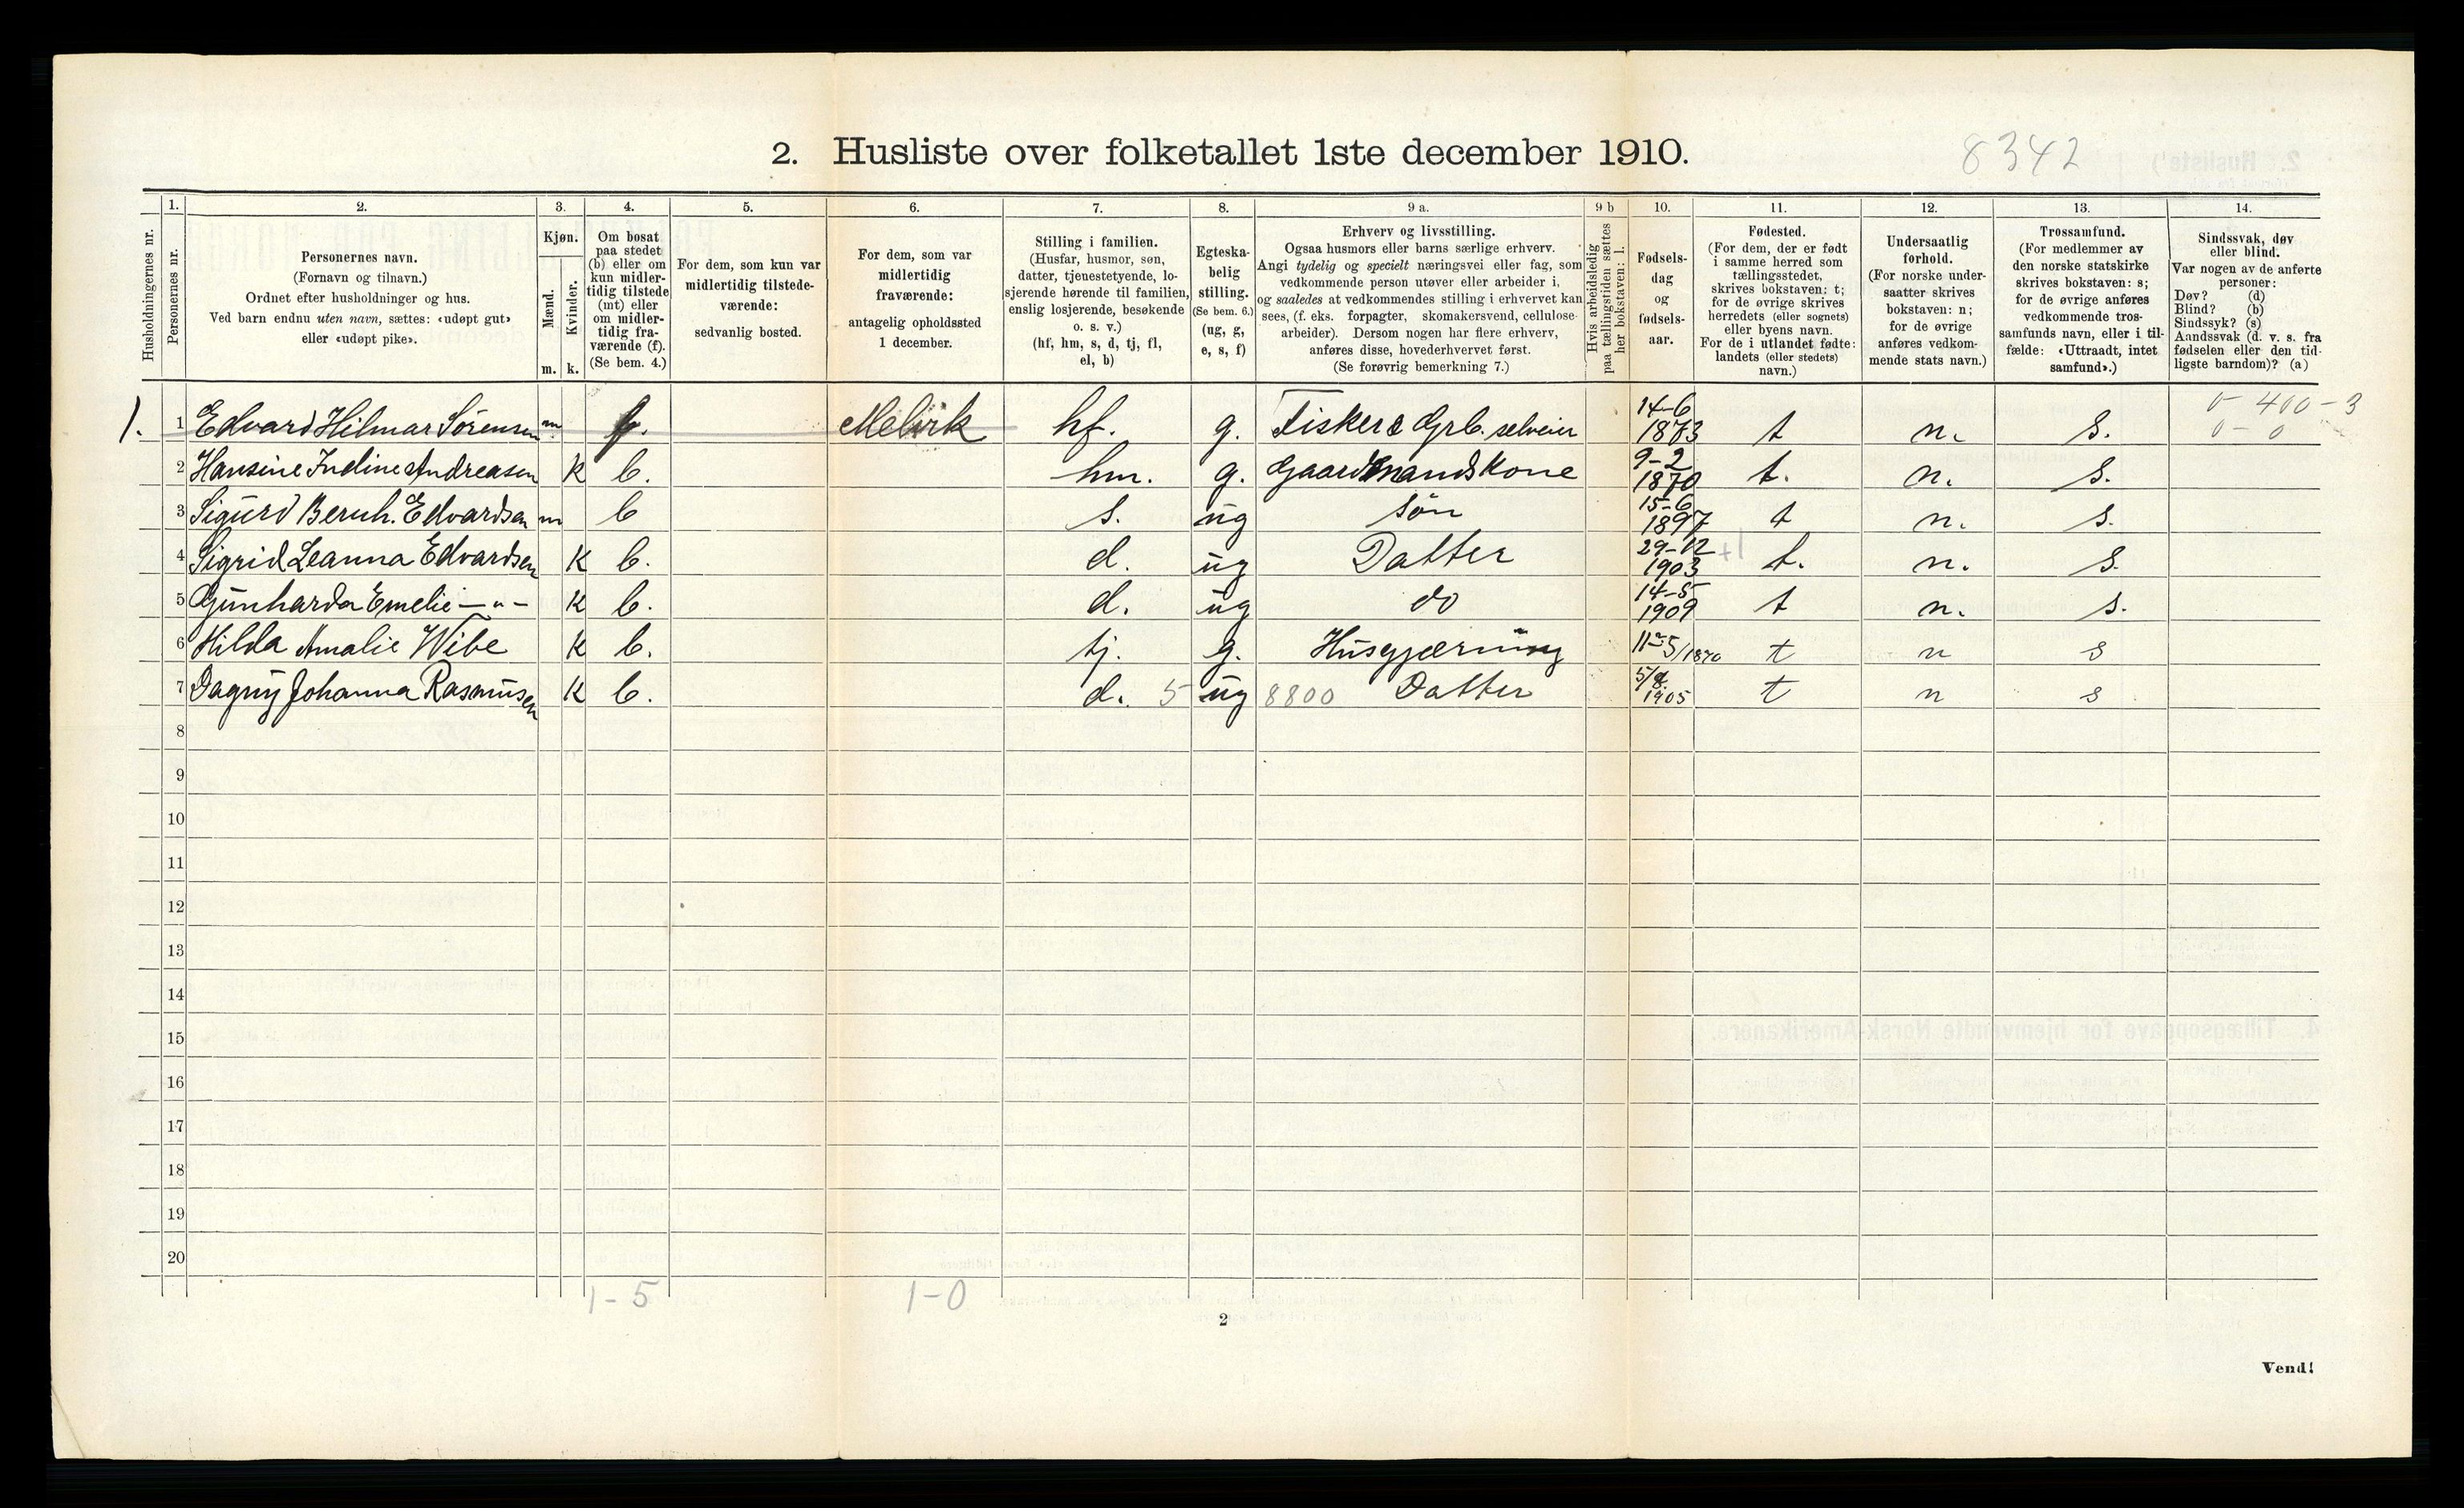 2. Husliste over folketallet 1ste december 1910.
8342
Husholdningernes nr.
1.
Personernes nr.
2.
Personernes navn.
(Fornavn og tilnavn.)
Ordnet efter husholdninger og hus.
Ved barn endnu uten navn, sættes: «udøpt gut»
eller «udøpt pike».
3.
Kjøn.
Mænd.
Kvinder.
m. k.
4.
Om bosat
paa stedet
(b) eller om
kun midler-
tidig tilstede
(mt) eller
om midler-
tidig fra-
værende (f).
(Se bem. 4.)
5.
For dem, som kun var
midlertidig tilstede-
værende:
sedvanlig bosted.
6.
For dem, som var
midlertidig
fraværende:
antagelig opholdssted
1 december.
7.
Stilling i familien.
(Husfar, husmor, søn,
datter, tjenestetyende, lo-
sjerende hørende til familien,
enslig losjerende, besøkende
o. s. v.)
(hf, hm, s, d, tj, fl,
el, b)
8.
Egteska-
belig
stilling.
(Se bem. 6.)
(ug, g,
e, s, f)
9 a.
Erhverv og livsstilling.
Ogsaa husmors eller barns særlige erhverv.
Angi tydelig og specielt næringsvei eller fag, som
vedkommende person utøver eller arbeider i,
og saaledes at vedkommendes stilling i erhvervet kan
sees, (f. eks. forpagter, skomakersvend, cellulose-
arbeider). Dersom nogen har flere erhverv,
anføres disse, hovederhvervet først.
(Se forøvrig bemerkning 7.)
9 b
Hvis arbeidsledig
paa tællingstiden sættes
her bokstaven: l.
10.
Fødsels-
dag
og
fødsels-
aar.
11.
Fødested.
(For dem, der er født
i samme herred som
tællingsstedet,
skrives bokstaven: t;
for de øvrige skrives
herredets (eller sognets)
eller byens navn.
For de i utlandet fødte:
landets (eller stedets)
navn.)
12.
Undersaatlig
forhold.
(For norske under-
saatter skrives
bokstaven: n;
for de øvrige
anføres vedkom-
mende stats navn.)
13.
Trossamfund.
(For medlemmer av
den norske statskirke
skrives bokstaven: s;
for de øvrige anføres
vedkommende tros-
samfunds navn, eller i til-
fælde: «Uttraadt, intet
samfund».)
14.
Sindssvak, døv
eller blind.
Var nogen av de anførte
personer:
Døv? (d)
Blind? (b)
Sindssyk? (s)
Aandssvak (d. v. s. fra
fødselen eller den tid-
ligste barndom)? (a)
1. 1 Edvard Hilmar Sörensen m f. Melvik hf. g. Fisker & Grb. selveier 14-6 1873 t n. s. 0-400-3 0-0
2 Hansine Indine Andreasen k b. hm. g. Gaardmandskone 9-2 1870 t. n. s.
3 Sigurd Bernh. Edvardsen m b s. ug sön 15-6 1897 t n. s.
4 Sigrid Leanna Edvardsen k b. d. ug Datter 29-12 1903 +1 t. n. s.
5 Gunharda Emelie —"— k b. d. ug do 14-5 1909 t n. s.
6 Hilda Amalie Wibe k b. tj. g. Husgjærning 11-5/1870 t n s
7 Dagny Johanna Rasmusen k b. d. 5 ug 8800 Datter 5/8 1905 t n s
8
9
10
11
12
13
14
15
16
17
18
19
20
1-5 1-0
2
Vend!